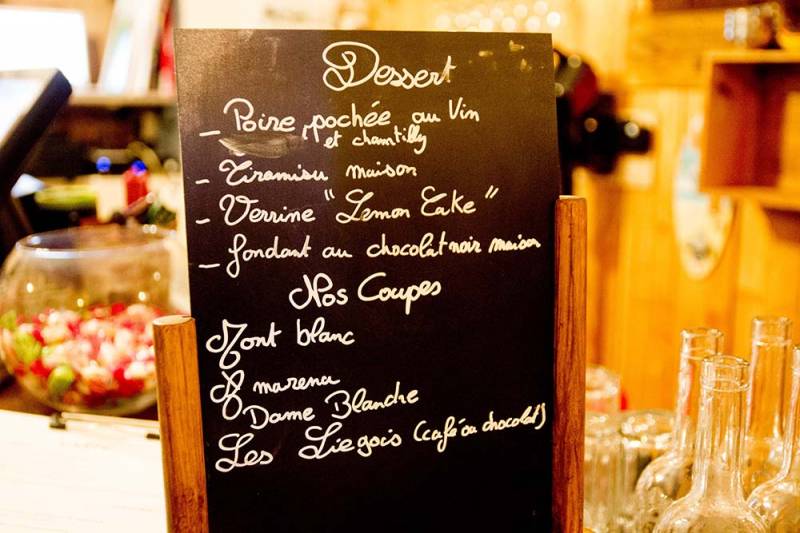 Dessert
- Poire pochée au Vin
et chantilly
- Tiramisu maison
- Verrine "Lemon Cake"
- fondant au chocolat noir maison
Nos Coupes
Mont blanc
Amarena
Dame Blanche
Les Liegois (café ou chocolat)